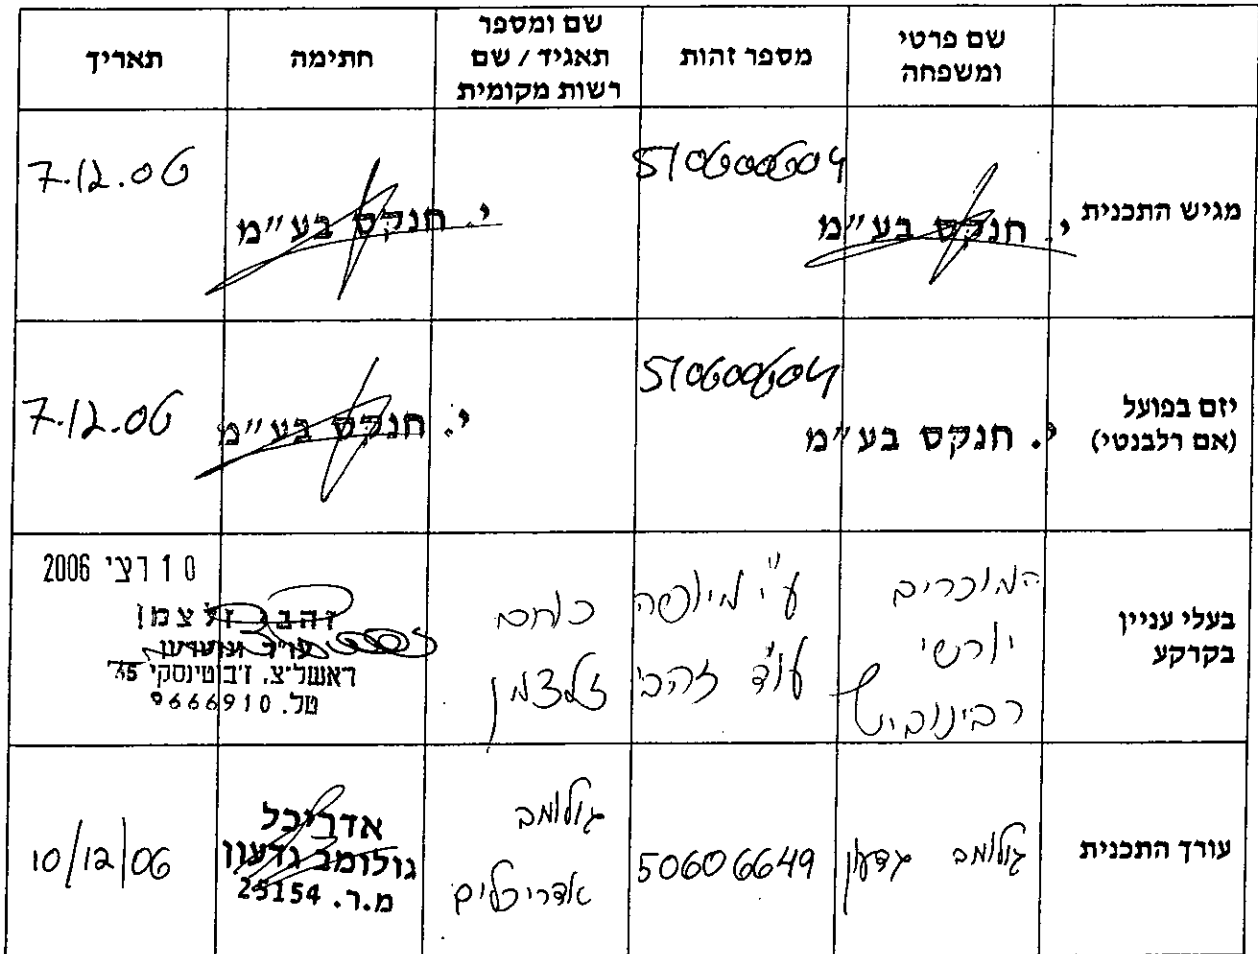 שם פרטי
ומשפחה
מספר זהות
שם ומספר
תאגיד / שם
רשות מקומית
חתימה
תאריך
מגיש התכנית
י. חנקס בע"מ
510600604
י. חנקס בע"מ
7.12.06
יזם בפועל
(אם רלבנטי)
י. חנקס בע"מ
510600604
י. חנקס בע"מ
7.12.06
בעלי עניין
בקרקע
המוכרים
יורשי
רבינוביץ
ע"י מיופה כוחם
עו"ד זהבי זלצמן
10 דצמ' 2006
זהבי זלצמן
עו"ד
ראשל"צ, ז'בוטינסקי 35
טל. 9666910
עורך התכנית
גולומב גדעון
50606649
גולומב
אדריכלים
אדריכל
גולומב גדעון
מ.ר. 25154
10/12/06